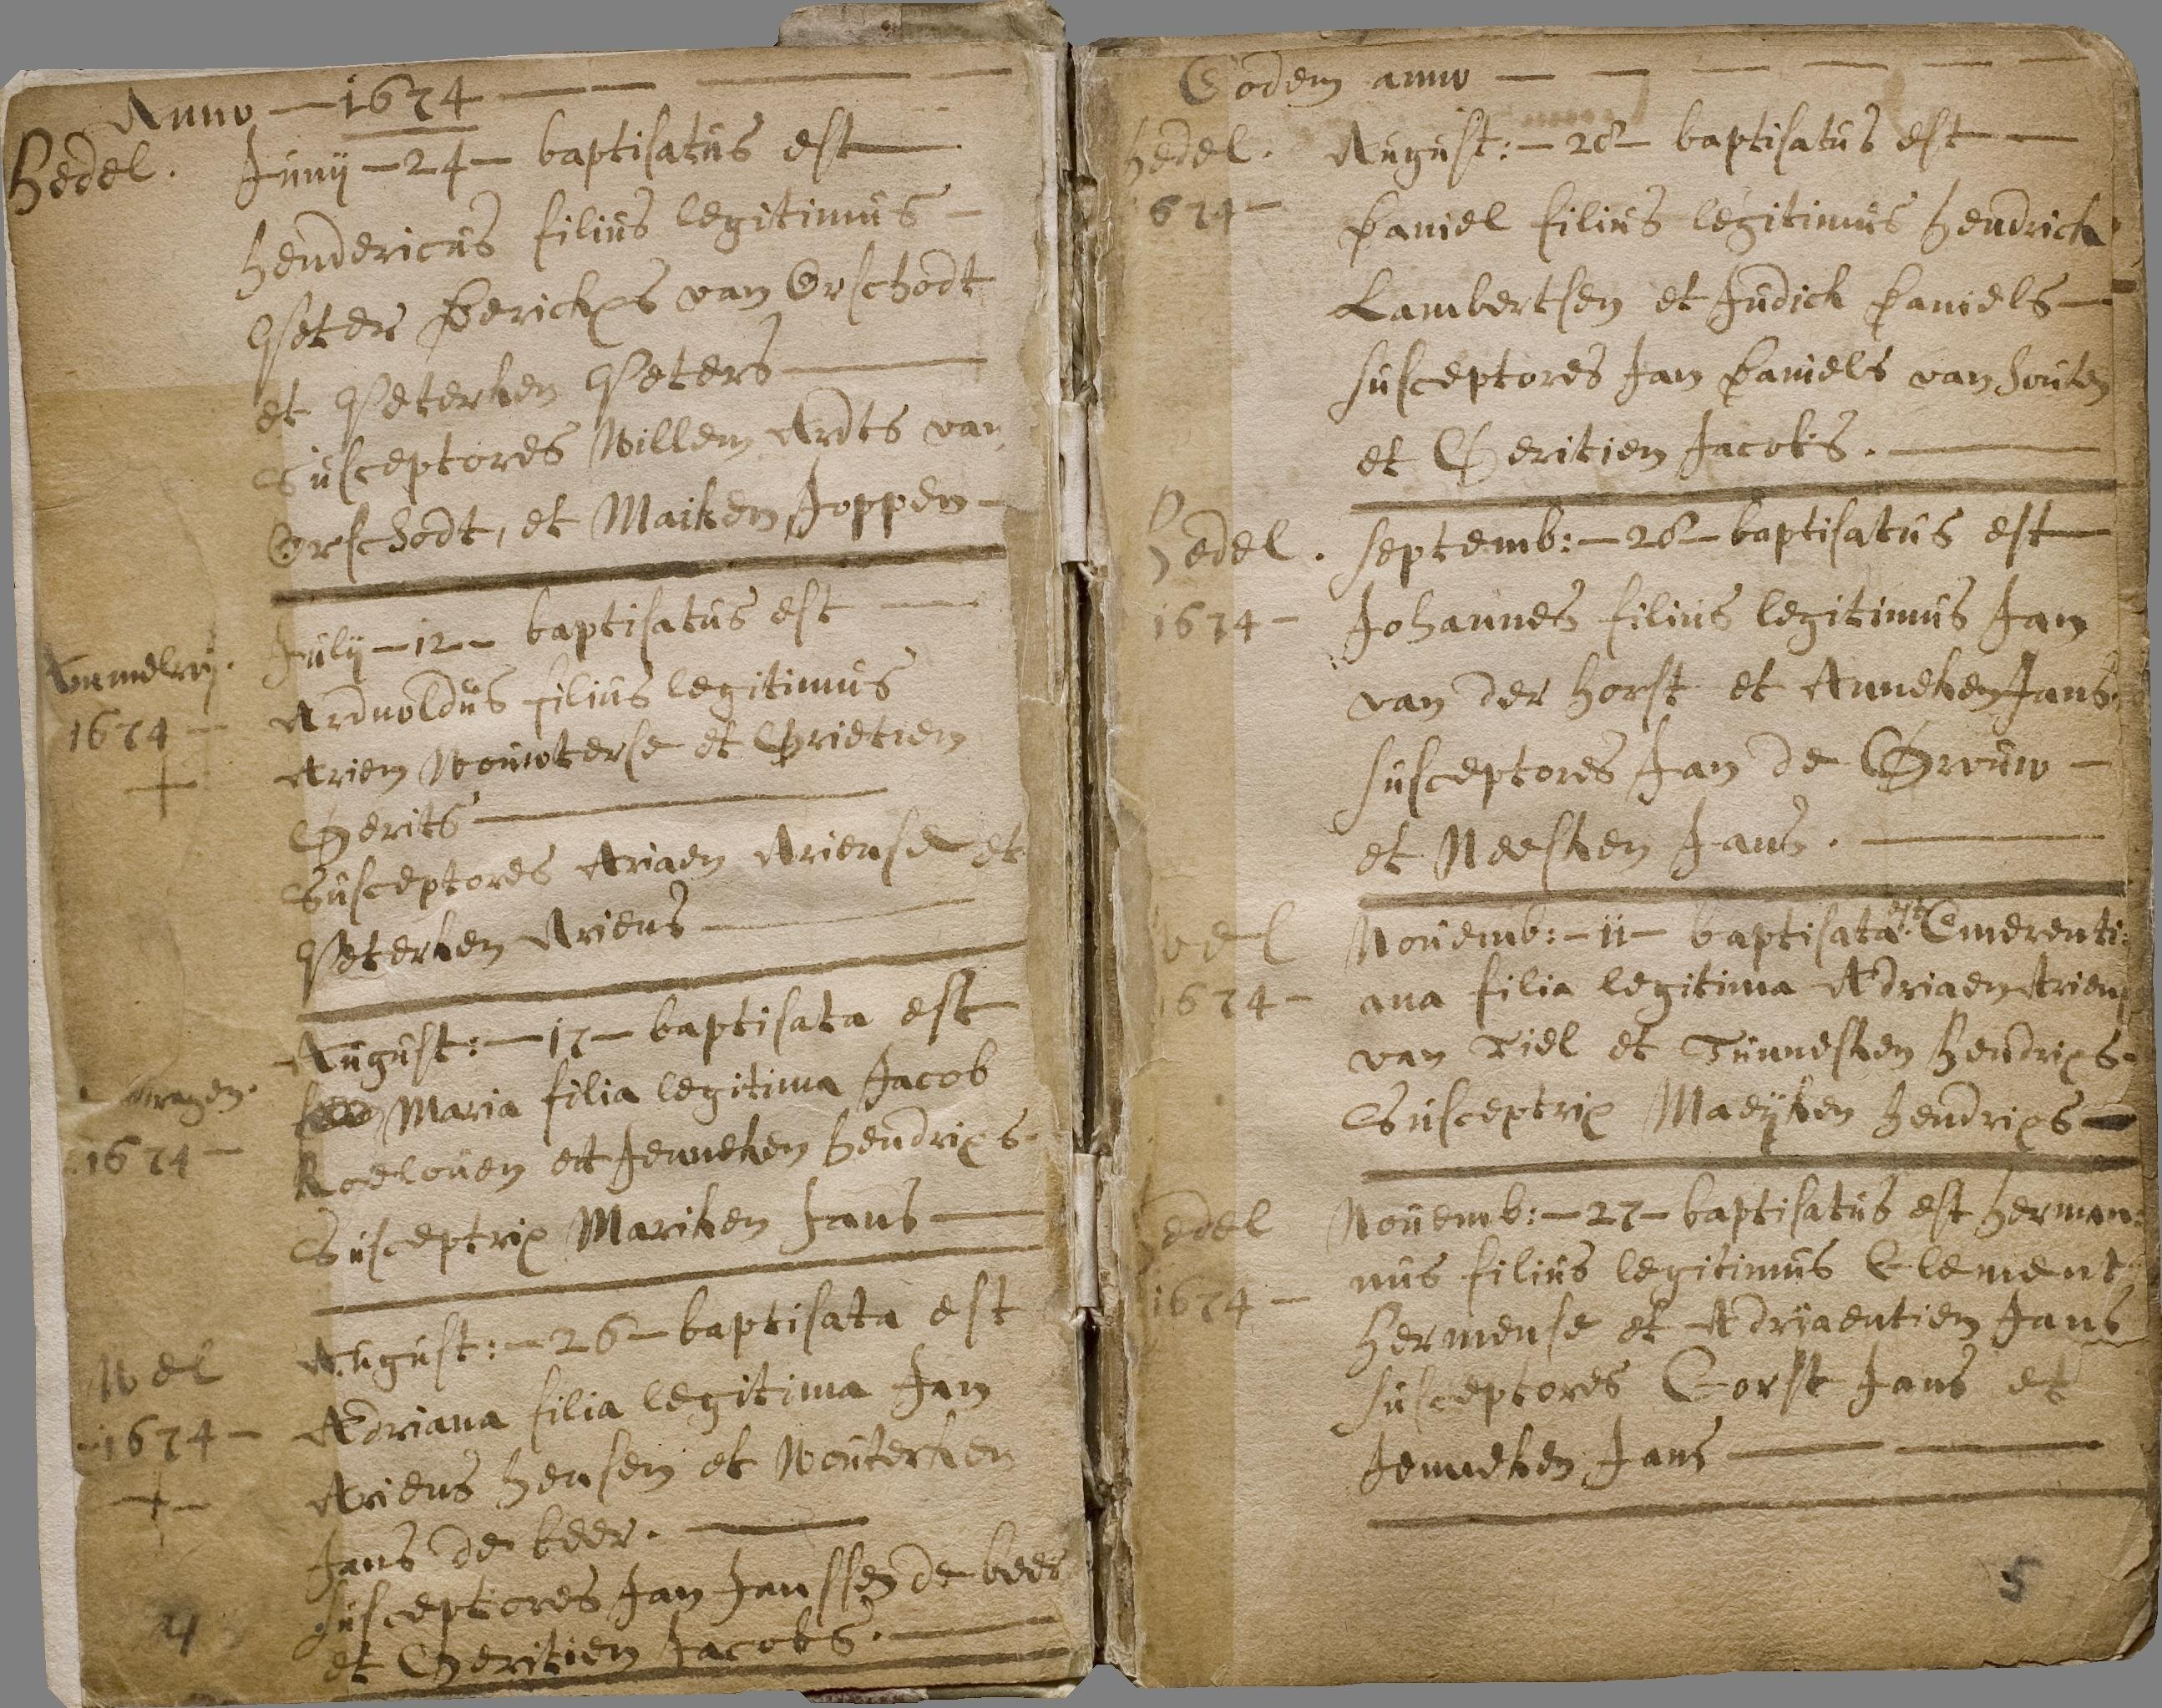 Anno - 1674
Hedel. Junij - 24 - baptisatus est
Hendericus filius legitimus
Peter Derichxs van Orschodt
et Peterken Peters
Susceptores Willem Ardts van
Orschodt, et Maiken Joppen
Ammelroij. Julij - 12 - baptisatus est
1674 - Ardnoldus filius legitimus
+ Arien Wouwterse et Grietien
Gerits
Susceptores Ariaen Ariense et
Peterken Ariens
August: - 17 - baptisata est
Maria filia legitima Jacob
1674 - Roelouen et Jenneken Hendrixs
Susceptrix Mariken Jans
Wel August: - 26 - baptisata est
1674 - Adriana filia legitima Jan
+ Ariens Hensen et Wouterken
Jans de beer.
Susceptores Jan Janssen de beer
et Geritien Jacobs.
4
Eodem anno
Hedel. August: - 28 - baptisatus est
1674 - Daniel filius legitimus Hendrick
Lambertsen et Judick Daniels
susceptores Jan Daniels van houten
et Geritien Jacobs.
Hedel. Septemb: - 26 - baptisatus est
1674 - Johannes filius legitimus Jan
van der Horst et Anneken Jans
susceptores Jan de Grouw
et Neesken Jans.
Wel Nouemb: - 11 - baptisata est Emerenti:
1674 - ana filia legitima Adriaen Ariens
van Tiel et Tunnesken Hendrixs
Susceptrix Maeyken Hendrixs
Hedel Nouemb: - 27 - baptisatus est Herman:
nus filius legitimus Clement
1674 - Hermense et Adryaentien Jans
susceptores Corst Jans et
Jenneken Jans
5